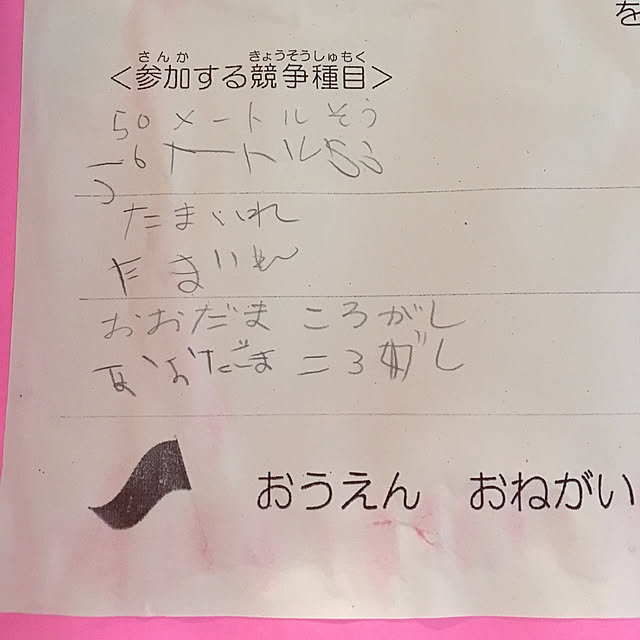 を
さんか きょうそうしゅもく
<参加する競争種目>
50メートルそう
たまいれ
たまいれ
おおだま ころがし
おおだま ころがし
おうえん おねがい